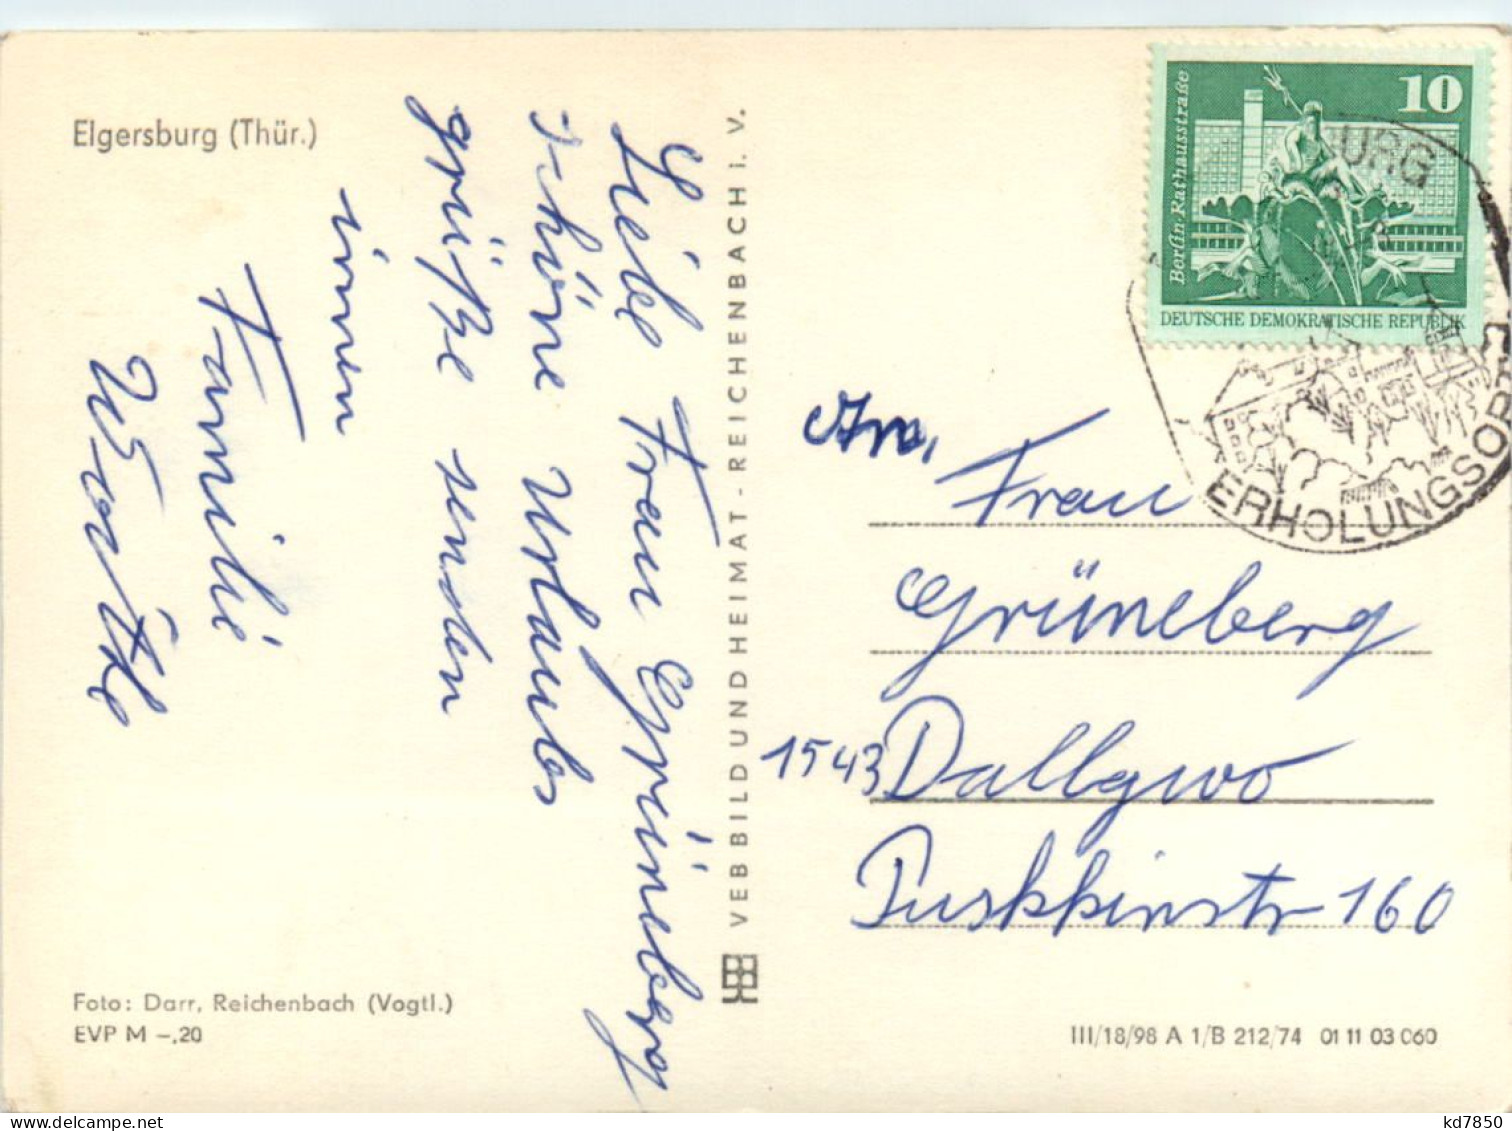 Elgersburg (Thür.)
Liebe Frau Grüneberg
schöne Urlaubs
grüße senden
innen
Familie
VEB BILD UND HEIMAT - REICHENBACH i. V.
Berlin · Rathausstraße
10
DEUTSCHE DEMOKRATISCHE REPUBLIK
BURG
ERHOLUNGSORT
An
Frau
Grüneberg
1543 Dallgwo
Puskkinstr 160
Foto: Darr, Reichenbach (Vogtl.)
EVP M –,20
III/18/98 A 1/B 212/74 01 11 03 060
kd7850